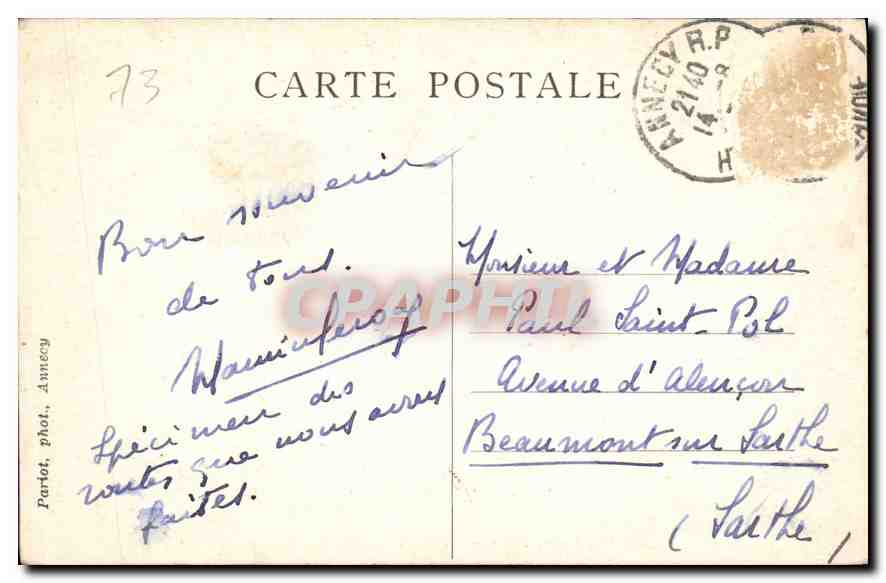 73
CARTE POSTALE
ANNECY R.P
21 40
14
H
Bon souvenir
de tous.
Spécimen des
routes que nous avons
faites.
Monsieur et Madame
Paul Saint-Pol
Avenue d'Alençon
Beaumont sur Sarthe
(Sarthe)
Pariot, phot., Annecy
CPAPHIL